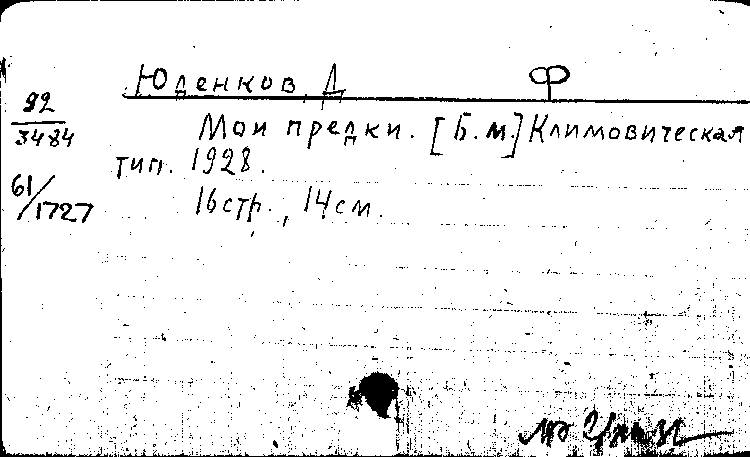 Юденков, Д Ф
92
3484
Мои предки. [Б.м.] Климовическая
тип. 1928.
61/1727
16стр., 14см.